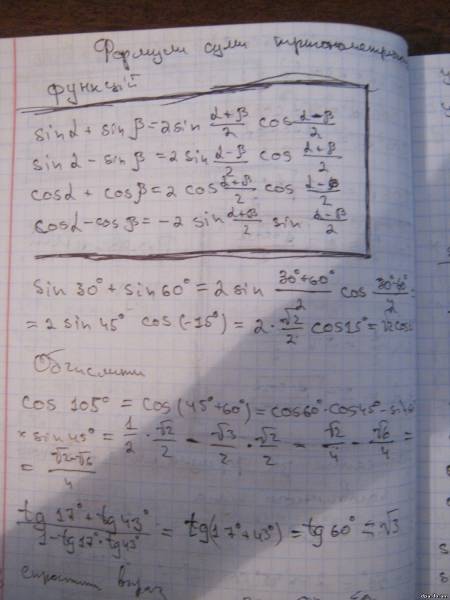 Формули суми тригонометричн
функцый
sinα + sinβ = 2 sin (α+β)/2 cos (α-β)/2
sinα - sinβ = 2 sin (α-β)/2 cos (α+β)/2
cosα + cosβ = 2 cos (α+β)/2 cos (α-β)/2
cosα - cosβ = -2 sin (α+β)/2 sin (α-β)/2
sin 30° + sin 60° = 2 sin (30°+60°)/2 cos (30°-60°)/2 =
= 2 sin 45° cos (-15°) = 2 · √2/2 cos15° = √2 cos
Обчислити
cos 105° = cos (45°+60°) = cos60° · cos45° - sin
× sin 45° = 1/2 · √2/2 - √3/2 · √2/2 = √2/4 - √6/4 =
= (√2-√6)/4
(tg 17° + tg 43°)/(1 - tg 17° · tg 43°) = tg (17° + 43°) = tg 60° = √3
спростит вираз
dpa.in.ua